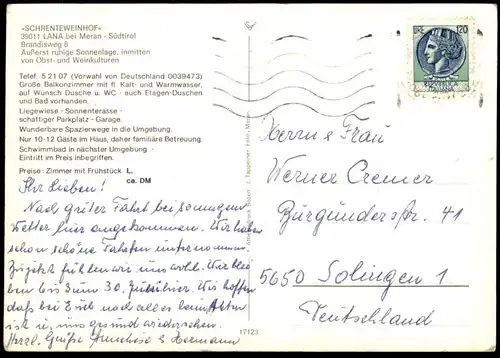 »SCHRENTEWEINHOF«
39011 LANA bei Meran - Südtirol
Brandisweg 8
Äußerst ruhige Sonnenlage, inmitten
von Obst- und Weinkulturen
Telef. 5 21 07 (Vorwahl von Deutschland 0039473)
Große Balkonzimmer mit fl. Kalt- und Warmwasser,
auf Wunsch Dusche u. WC - auch Etagen-Duschen
und Bad vorhanden.
Liegewiese - Sonnenterasse -
schattiger Parkplatz - Garage.
Wunderbare Spazierwege in die Umgebung.
Nur 10-12 Gäste im Haus, daher familiäre Betreuung.
Schwimmbad in nächster Umgebung -
Eintritt im Preis inbegriffen.
Preise: Zimmer mit Frühstück L.
ca. DM
Ihr Lieben!
Nach guter Fahrt bei sonnigem
Wetter hier angekommen. Wir haben
schon schöne Fahrten unternommen.
Zu jetzt fühlen wir uns wohl. Wir blei
ben bis zum 30. hier. Wir hoffen
daß bei Euch noch alles beim Alten
ist u. uns gesund wiedersehen.
Herzl. Grüße Anneliese & Hermann
17123
LIRE 120
Herrn & Frau
Werner Cremer
Burgunderstr. 41
5650 Solingen 1
Deutschland